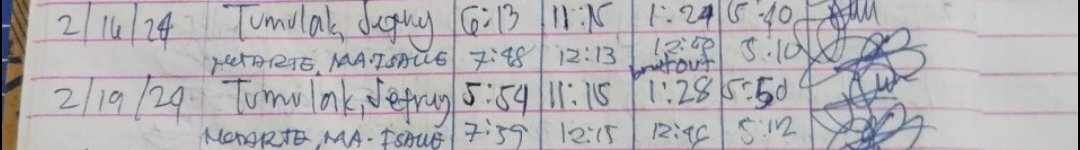 2/16/24 Tumulak, Jefrey 6:13 11:15 1:24 5:40
MA. ISABLE 7:48 12:13 5:10
2/19/24 Tumulak, Jefrey 5:54 11:15 1:28 5:50
MA. ISABLE 7:59 12:15 12:46 5:12